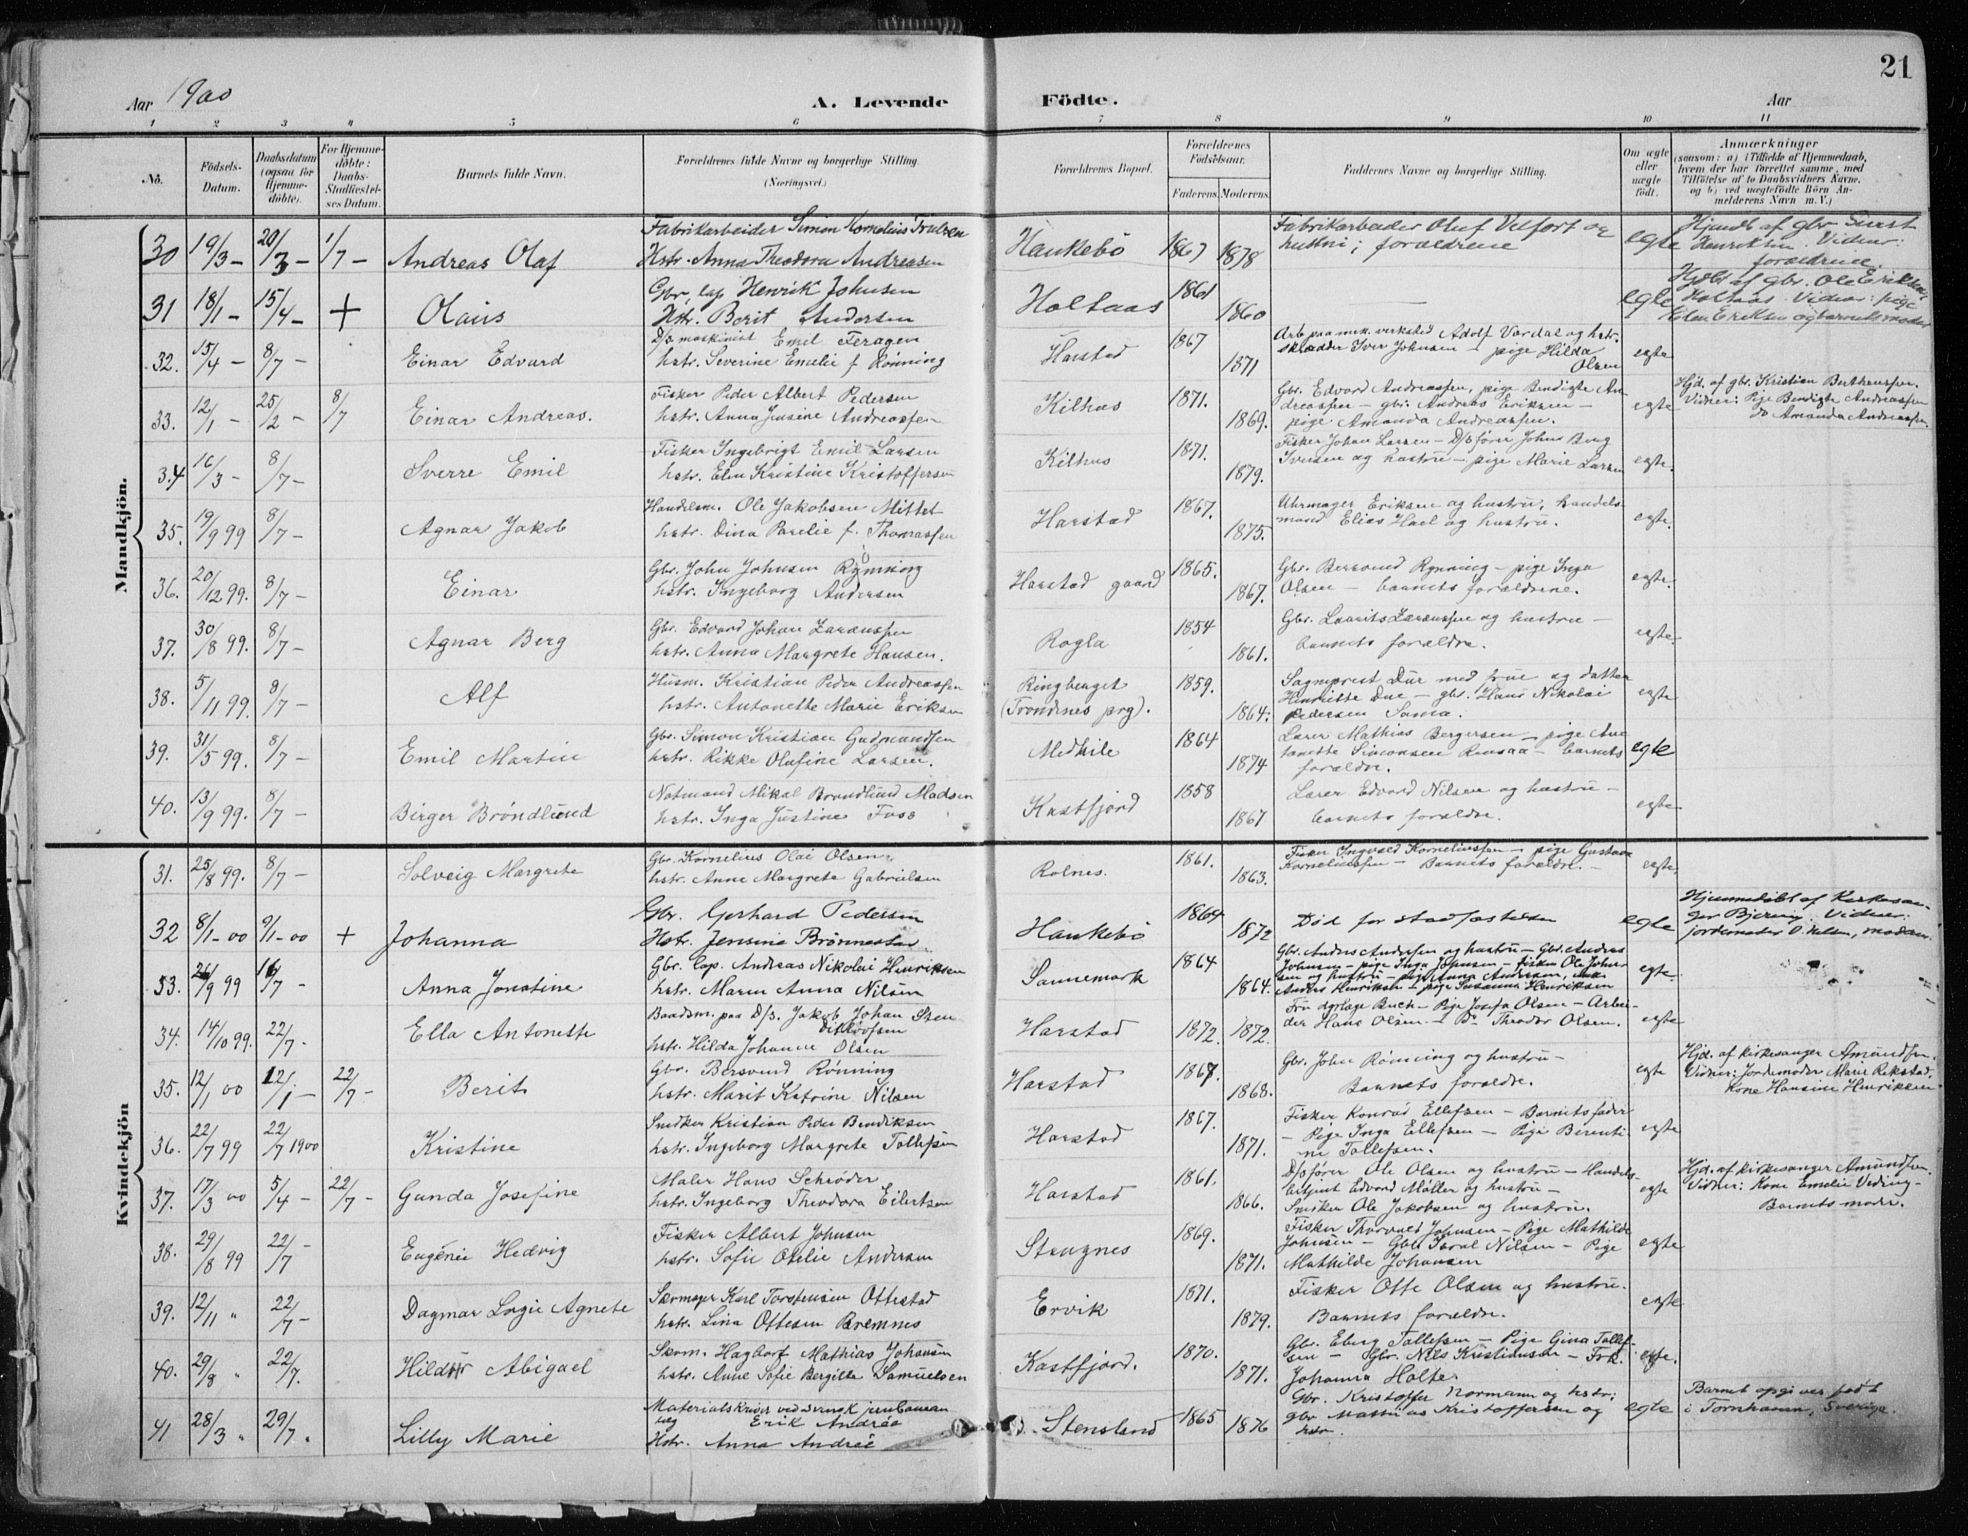 21
Aar 1900
A. Levende Födte.
Aar
1 2 3 4 5 6 7 8 9 10 11
No.
Födsels-Datum.
Daabsdatum (ogsaa for Hjemme-döbte).
For Hjemme-döbte: Daabs-Stadfæstel-ses Datum.
Barnets fulde Navn.
Forældrenes fulde Navne og borgerlige Stilling. (Næringsvei.)
Forældrenes Bopæl.
Forældrenes Födselsaar.
Faderens. Moderens.
Faddernes Navne og borgerlige Stilling.
Om ægte eller uægte födt.
Anmærkninger
(saasom: a) i Tilfælde af Hjemmedaab, hvem der har forrettet samme, med Tilföielse af to Daabsvidners Navne, og b) ved uegtefödte Börn An-melderens Navn m. V.)
Mandkjön.
30 19/3 - 20/3 - 1/7 - Andreas Olaf
Fabrikarbeider Simon Kornelius Trulsen
Hstr. Anna Theodora Andreasen
Haukebö 1867 1878
Fabrikarbeider Oluf Velfort og
hustru; forældrene
egte
Hjmdt af gbr
Henriksen. Vidner:
forældrene.
31 18/1 - 15/4 - + Olaus
Gbr, lap Henrik Johnsen
Hstr. Berit Andersen
Holtaas 1861 1860
egte
Hjdbt af gbr. Ole Eriksen
Holtaas. Vidner: pige
Elen Eriksen og barnets moder
32. 15/4 - 8/7 - Einar Edvard
D/s maskinist Emil Feragen
hstr. Severine Emelie f Rønning
Harstad 1867 1871
Arb. paa mek. verksted Adolf Vardal og hstr.
skrædder Iver Johnsen - pige Hilda
Olsen
egte
33. 12/1 - 25/2 - 8/7 Einar Andreas.
Fisker Peder Albert Pedersen
hstr. Anna Jusine Andreassen
Kilhus 1871. 1869.
Gbr. Edvard Andreassen, pige Bendigte An-
dreassen - gbr. Andreas Eriksen -
pige Amanda Andreassen.
egte
Hjd. af gbr. Kristian Berthenssen.
Vidner: Pige Bendigte Andreassen
do Amanda Andreassen.
34 16/3 - 8/7 - Sverre Emil
Fisker Ingebrigt Emil Larsen
hstr. Elen Kristine Kristoffersen
Kilhus 1871. 1879.
Fisker Johan Larsen - D/sfører Johns Berg
Iversen og hustru - pige Marie Larsen
egte.
35. 19/9 99 8/7 - Agnar Jakob
Handelsm. Ole Jakobsen Mittet
hstr. Dina Parelie f. Thomassen
Harstad 1867. 1875.
Uhrmager Eriksen og hustru, handels-
mand Elias Hael og hustru.
egte.
36. 20/12 99. 8/7 - Einar
Gbr. John Johnsen Rynning
hstr. Ingeborg Andersen
Harstad gaard 1865. 1867.
Gbr. Bersvend Rynning - pige Inga
Olsen - barnets forældrene.
egte.
37. 30/8 99. 8/7 - Agnar Berg
Gbr. Edvard Johan Zarænssen
hstr. Anna Margrete Hansen.
Rogla 1854 1861.
Gbr. Laurits Zarænssen og hustru -
barnets forældre.
egte.
38. 5/11 99. 8/7 - Alf
Husm. Kristian Peder Andreassen
hstr. Antonette Marie Eriksen
Ringberget
(Trondenes prg). 1859. 1864.
Sogneprest Due med frue og datter
Henriette Due - gbr. Hans Nikolai
Pedersen Sama.
egte
39. 31/5 99. 8/7 - Emil Martin
Gbr. Simon Kristian Gudmundsen
hstr. Rikke Olufine Larsen.
Medkile 1864 1874
Lærer Mathias Bergersen - pige
Simonsen Rensaa - barnets
forældre.
egte
40. 13/9 99. 8/7 - Birger Brøndlund
Notmand Mikal Brøndlund Madsen
hstr. Inga Justine Foss
Kastfjord 1858 1867
Lærer Edvard Nilsen og hustru -
barnets forældre.
egte.
Kvindekjön
31. 25/8 99. 8/7 - Solveig Margrete
Gbr. Kornelius Olai Olsen
hstr. Anne Margrete Gabrielsen
Rolnes. 1861. 1863.
Fisker Ingvald Korneliussen - pige Gustava
Korneliussen - Barnets forældre. -
egte.
32 8/1-00 9/1-00 + Johanna
Gbr. Gerhard Pedersen
Hstr. Jensine Brønnestad
Haukebö 1864 1872
Død før stadfæstelsen
egte
Hjemmedöbt af Kirkesan-
ger Bjering. Vidner:
jordemoder O. Nilsen, moderen.
33. 26/9 99 16/7 - Anna Jonatine
Gbr. lap. Andreas Nikolai Henriksen
hstr. Maren Anna Nilsen
Sannemark 1864 1864.
Gbr. Anders Andersen og hustru - Gbr. Anders
Johnsen - pige Inga Johnsen - fisker Ole John-
sen og hustru - pige Anna Andersen,
Anders Henriksen - pige Susanna Henriksen
egte.
34. 14/10 99. 22/7 - Ella Antonette
Baadsm. paa D/s. Jakob Johan Sten
Ditlevsen
hstr. Hilda Johanne Olsen
Harstad 1872. 1872.
Fru dyrlæge Buch - Pige Josefa Olsen - Arbei-
der Hans Olsen - Do Theodor Olsen.
egte
35. 12/1 00 12/1 - 22/7 - Berit
Gbr. Bersvend Rønning
hstr. Marit Katrine Nilsen
Harstad 1867. 1868.
Gbr. John Rønning og hustru -
Barnets forældre.
egte
Hjd. af kirkesanger Amundsen.
Vidner: Jordemoder Marie Rekstad,
Kone Hansine Henriksen
36. 22/7 99 22/7 1900 Kristine
Snedker Kristian Peder Bendiksen
hstr. Ingeborg Margrete Tollefsen
Harstad 1867. 1871.
Fisker Konrad Ellefsen - Barnets fader
- Pige Inga Ellefsen - Pige Birenti-
ne Tollefsen.
egte
37. 17/3 00 5/4 - 22/7 - Gunda Josefine
Maler Hans Schrøder
hstr. Ingeborg Theodora Eilertsen
Harstad 1861. 1866.
D/sfører Ole Olsen og hustru - Handels-
betjent Edvard Møller og hustru -
Snedker Ole Jakobsen og hustru.
egte
Hjd. af kirkesanger Amundsen.
Vidner: Kone Emelie Veding -
Barnets moder.
38. 29/8 99 22/7 - Eugenie Hedvig
Fisker Albert Johnsen
hstr. Sofie Otelie Andersen
Stangnes 1869. 1871.
Fisker Thorvald Johnsen - Pige Mathilde
Johnsen - Gbr. Nilsen - Pige
Mathilde Johansen
egte
39. 12/11 " 22/7 - Dagmar Agnete
Skomager Karl Torstensen Ottestad
hstr. Lina Ottesen Bremnes
Ervik 1871. 1879.
Fisker Otte Olsen og hustru.
Barnets forældre.
egte
40. 29/8 " 22/7. Hildur Abigael
Skom. Hagbart Mathias Johansen
hstr. Anne Sofie Bergitte Samuelsen
Kastfjord. 1870. 1871.
Gbr. Eberg Tollefsen - Pige Gina Tollef-
sen - Gbr. Nils Kristiansen - Frk.
Johanna Holter
egte.
41 28/3 " 29/7 " Lilly Marie
Materialskriver ved svensk jernbanean-
læg Erik Andrée
Hstr. Anna Andrée
Stensland 1865 1876
Gbr. Kristoffer Normann og hstr;
gbr Mathias Kristoffersen og
hstr.
egte
Barnet opgives født
i Tornhamn, Sverige.